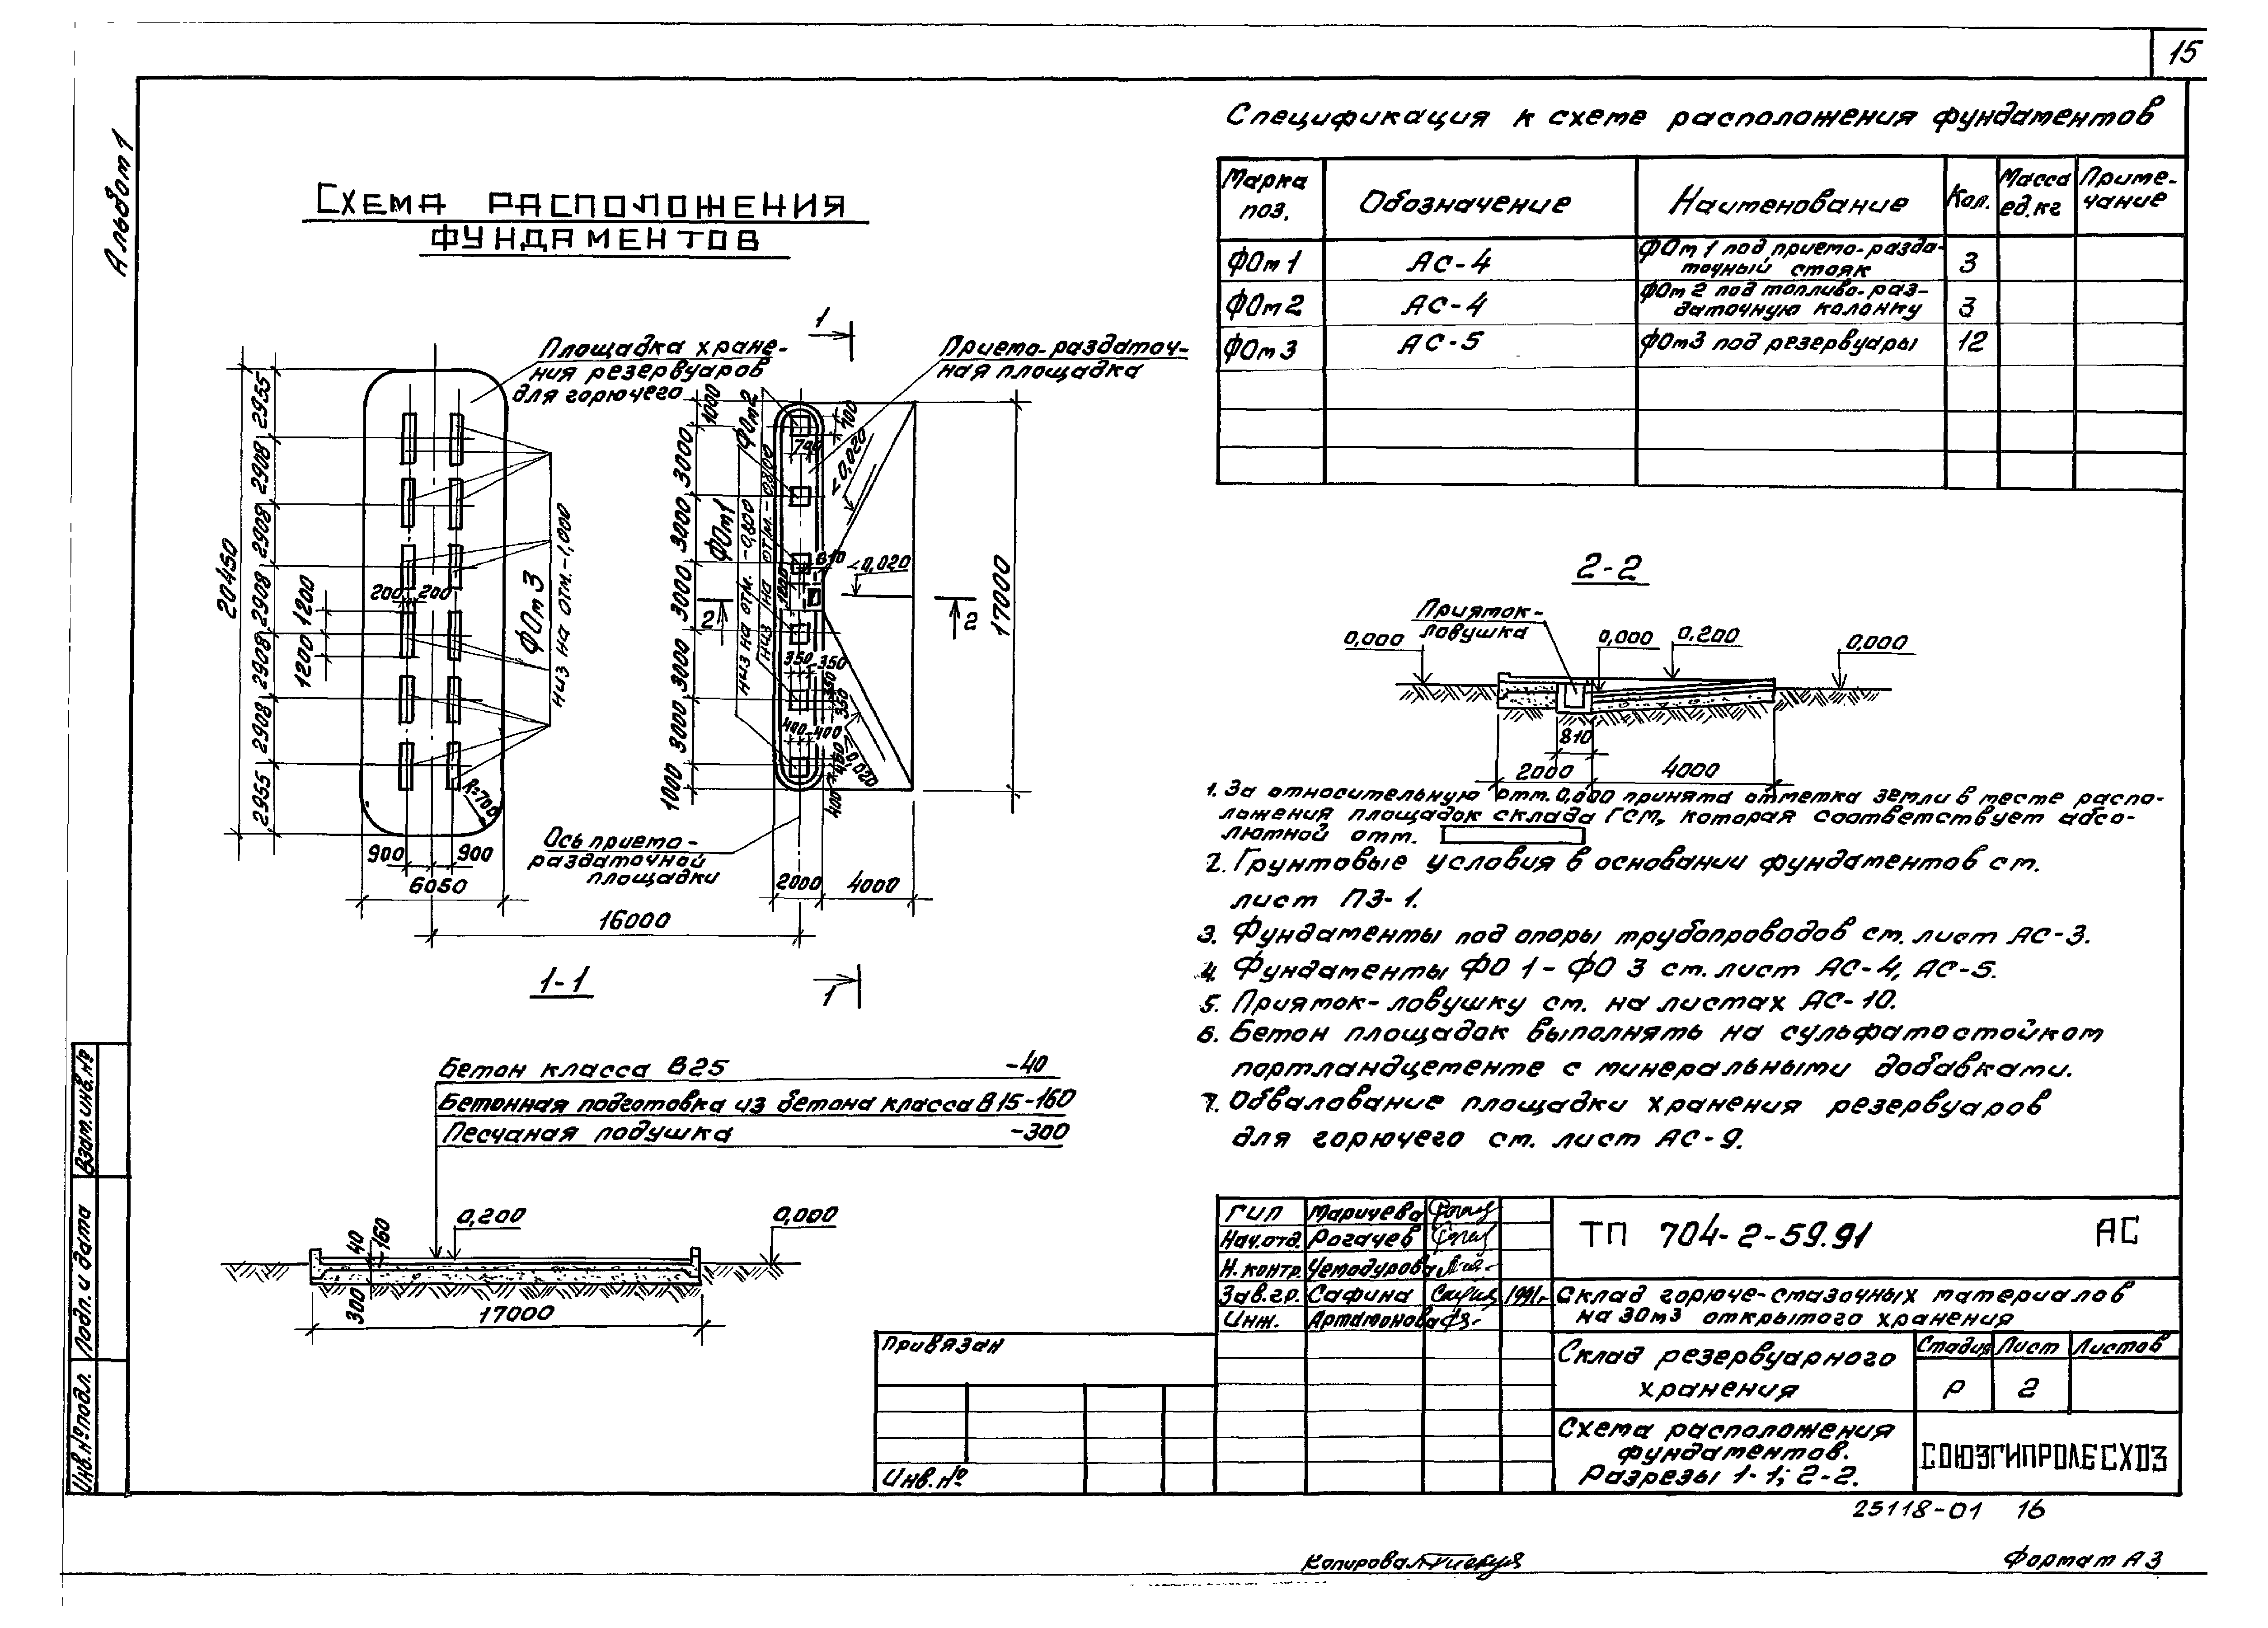 15
Альбом 1
Схема расположения
фундаментов
Площадка хране-
ния резервуаров
для горючего
Приемо-раздаточ-
ная площадка
1
1
2
2
20450
2955
2908
2908
2908
2908
2908
2955
1200
1200
200
200
ФОм 3
низ на отм. -1,000
R=700
900
900
6050
16000
1000
3000
3000
3000
3000
3000
1000
ФОм2
низ на отм. -0,800
ФОм1
низ на отм. -0,800
400
<0,020
<0,020
<0,020
810
1200
350
350
350
350
400
400
400
400
17000
2000
4000
Ось приемо-
раздаточной
площадки
1-1
Бетон класса В25 -40
Бетонная подготовка из бетона класса В15-160
Песчаная подушка -300
40
160
300
0,200
0,000
17000
Спецификация к схеме расположения фундаментов
Марка поз.
Обозначение
Наименование
Кол.
Масса ед.кг
Приме-
чание
ФОм1 АС-4 ФОм 1 под приемо-разда-
точный стояк 3
ФОм2 АС-4 ФОм 2 под топливо-раз-
даточную колонку 3
ФОм3 АС-5 ФОм3 под резервуары 12
2-2
Приямок-
ловушка
0,000
0,000
0,200
0,000
810
2000
4000
1. За относительную отм. 0,000 принята отметка земли в месте распо-
ложения площадок склада ГСМ, которая соответствует абсо-
лютной отм.
2. Грунтовые условия в основании фундаментов см.
лист ПЗ-1.
3. Фундаменты под опоры трубопроводов см. лист АС-3.
4. Фундаменты ФО 1 - ФО 3 см. лист АС-4, АС-5.
5. Приямок-ловушку см. на листах АС-10.
6. Бетон площадок выполнять на сульфатостойком
портландцементе с минеральными добавками.
7. Обвалование площадки хранения резервуаров
для горючего см. лист АС-9.
ГИП Маричева
Нач.отд. Рогачев
Н.контр. Чемодурова
Зав.гр. Сафина 1991г
Инж. Артамонова
ТП 704-2-59.91 АС
Склад горюче-смазочных материалов
на 30м3 открытого хранения
Склад резервуарного
хранения
Стадия Лист Листов
Р 2
Схема расположения
фундаментов.
Разрезы 1-1; 2-2.
СОЮЗГИПРОЛЕСХОЗ
Привязан
Инв.№
Взам.инв.№
Подп. и дата
Инв.№подл.
25118-01 16
Копировал
Формат А3